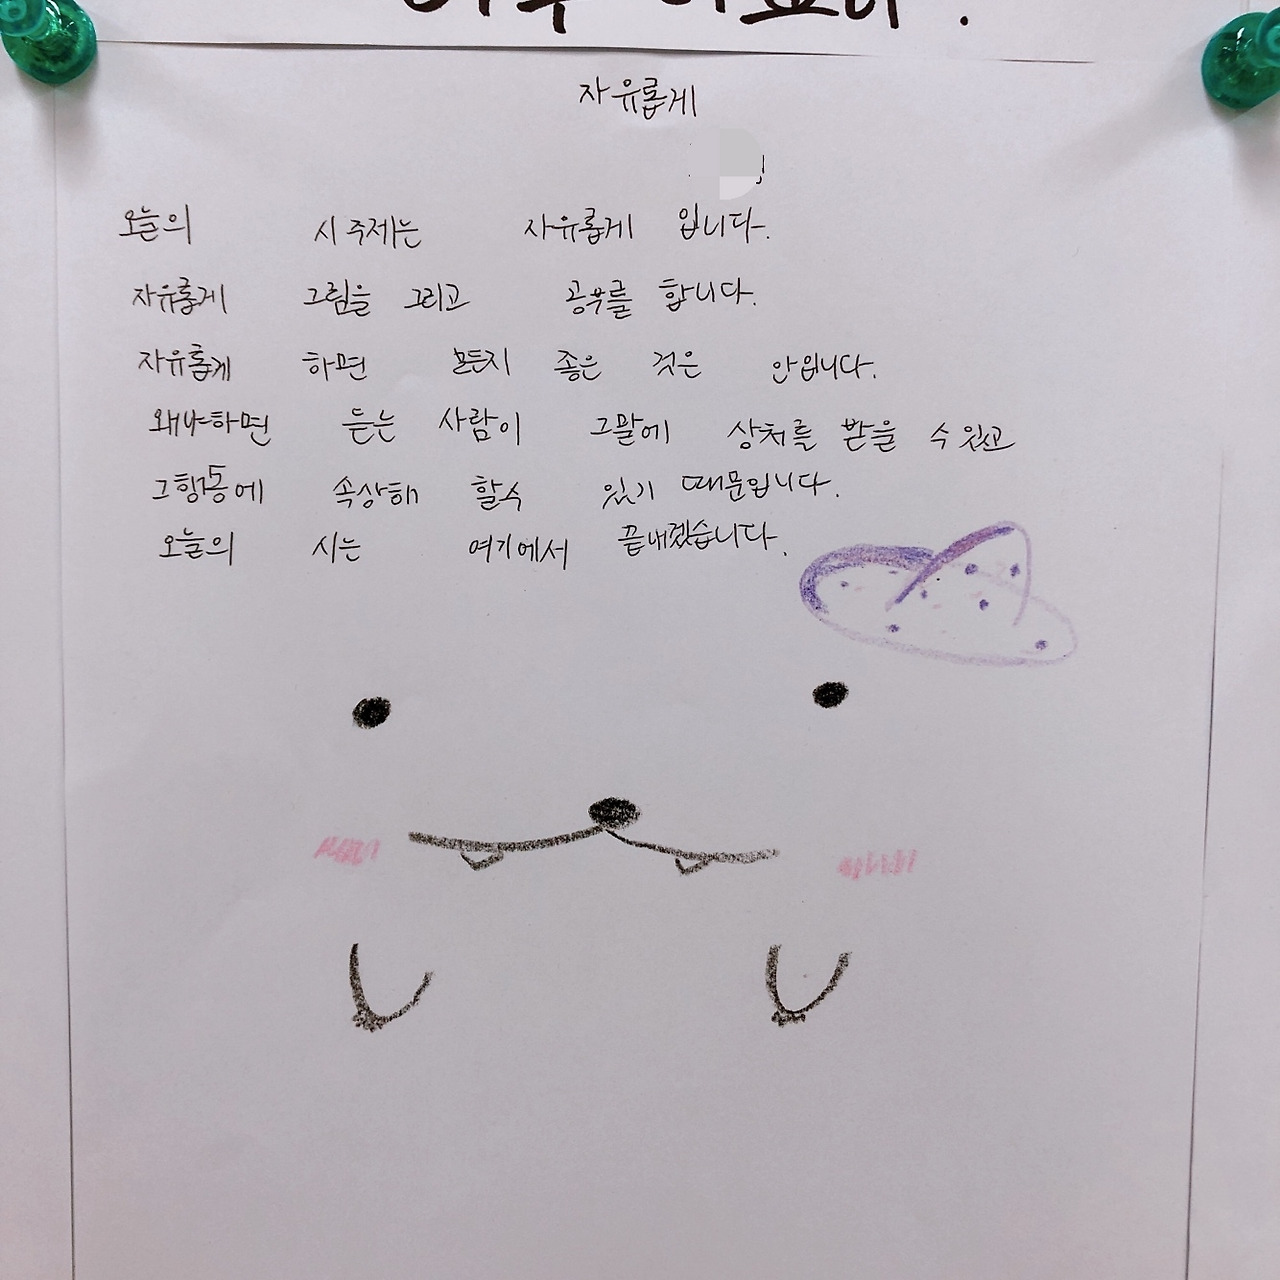 자유롭게
오늘의 시 주제는 자유롭게 입니다.
자유롭게 그림을 그리고 공부를 합니다.
자유롭게 하면 뭐든지 좋은 것은 안입니다.
왜냐하면 듣는 사람이 그말에 상처를 받을 수 있고
그행동에 속상해 할수 있기 때문입니다.
오늘의 시는 여기에서 끝내겠습니다.